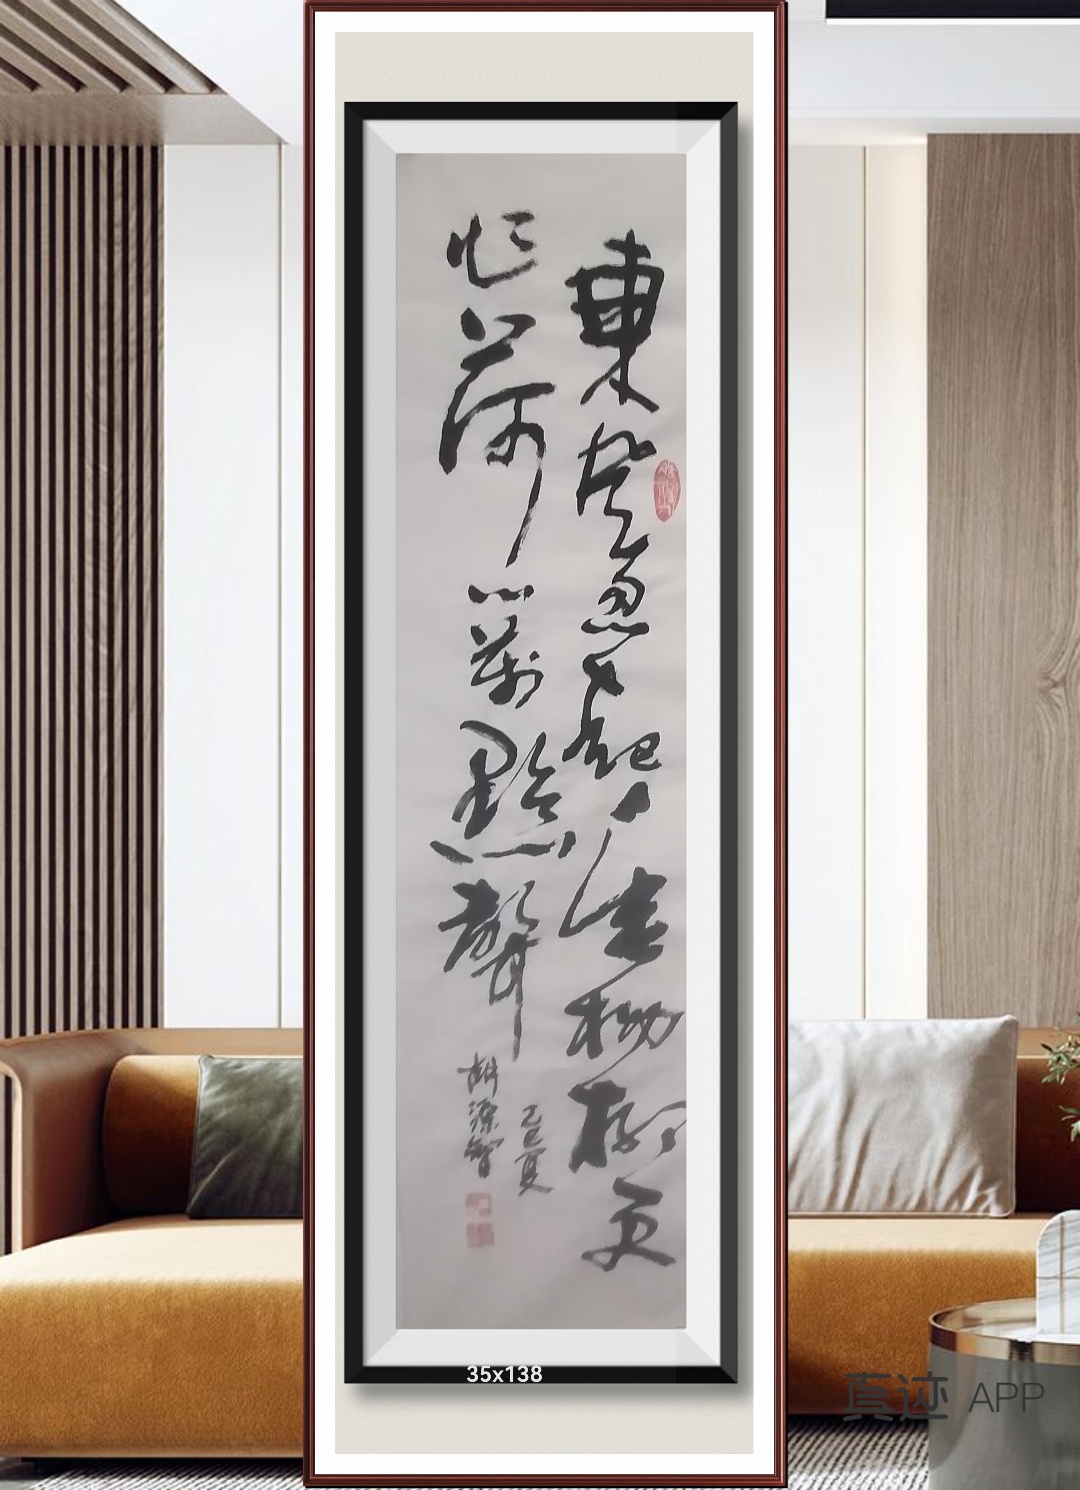 東風忽起垂楊柳更
作荷心萬點聲
乙巳夏
胡源智
35x138
真迹 APP